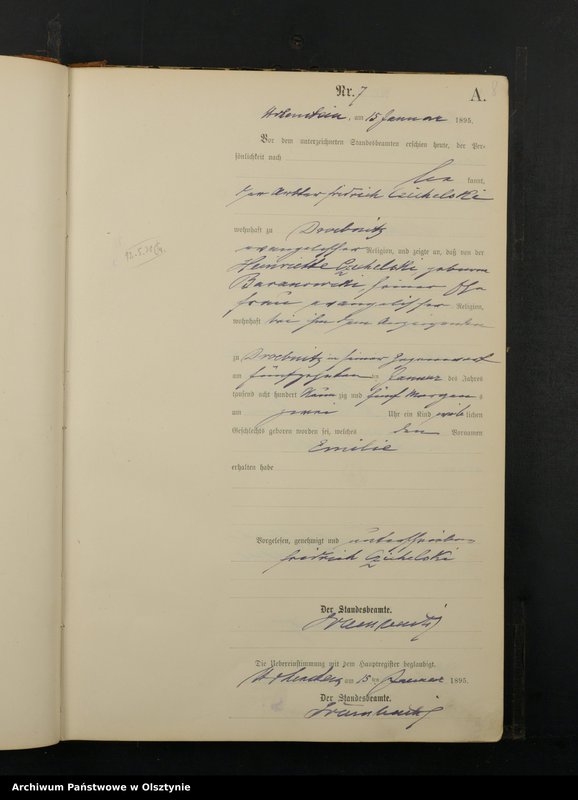 Nr. 7
A. 8
Hohenstein, am 15 Januar 1895.
Vor dem unterzeichneten Standesbeamten erschien heute, der Per-
sönlichkeit nach
be kannt,
der Friedrich Czichelski
wohnhaft zu Droebnitz
evangelischer Religion, und zeigte an, daß von der
Henriette Czichelski, geborene
Baranowski, seiner Ehe
frau, evangelischer Religion,
wohnhaft bei ihm dem Anzeigenden
zu Droebnitz in seiner Gegenwart
am fünfzehnten Januar des Jahres
tausend acht hundert Neun zig und fünf Morgens
um zwei Uhr ein Kind weib lichen
Geschlechts geboren worden sei, welches den Vornamen
Emilie
erhalten habe
Vorgelesen, genehmigt und unterschrieben
Friedrich Czichelski
Der Standesbeamte.
Die Uebereinstimmung mit dem Hauptregister beglaubigt.
Hohenstein am 15 ten Januar 1895.
Der Standesbeamte.
Archiwum Państwowe w Olsztynie